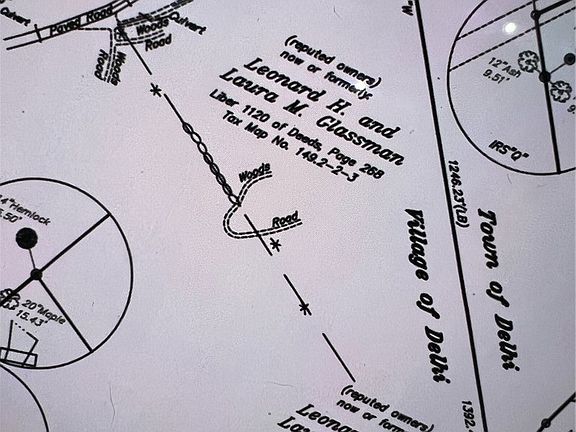 Culvert
Paved Road
Culvert
Woods
Road
Woods
Road
"W
(reputed owners)
now or formerly
Leonard H. and
Laura M. Glassman
Liber 1120 of Deeds, Page 268
Tax Map No. 149.2-2-3
12"Ash
9.51'
IRS"Q"
Woods
Road
1246.23'(LB)
Village of Delhi
Town of Delhi
Hemlock
.50'
20"Maple
15.43'
(reputed owners)
now or formerly
1392.